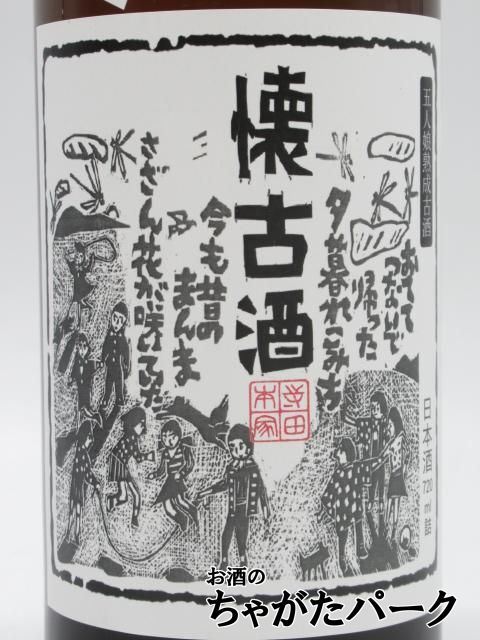 五人娘熟成古酒
懐古酒
おてて
つないで
帰った
夕暮れこみち
今も昔の
まんま
さざん花が咲いてゐた
寺田
本家
日本酒 720ml詰
お酒の
ちゃがたパーク